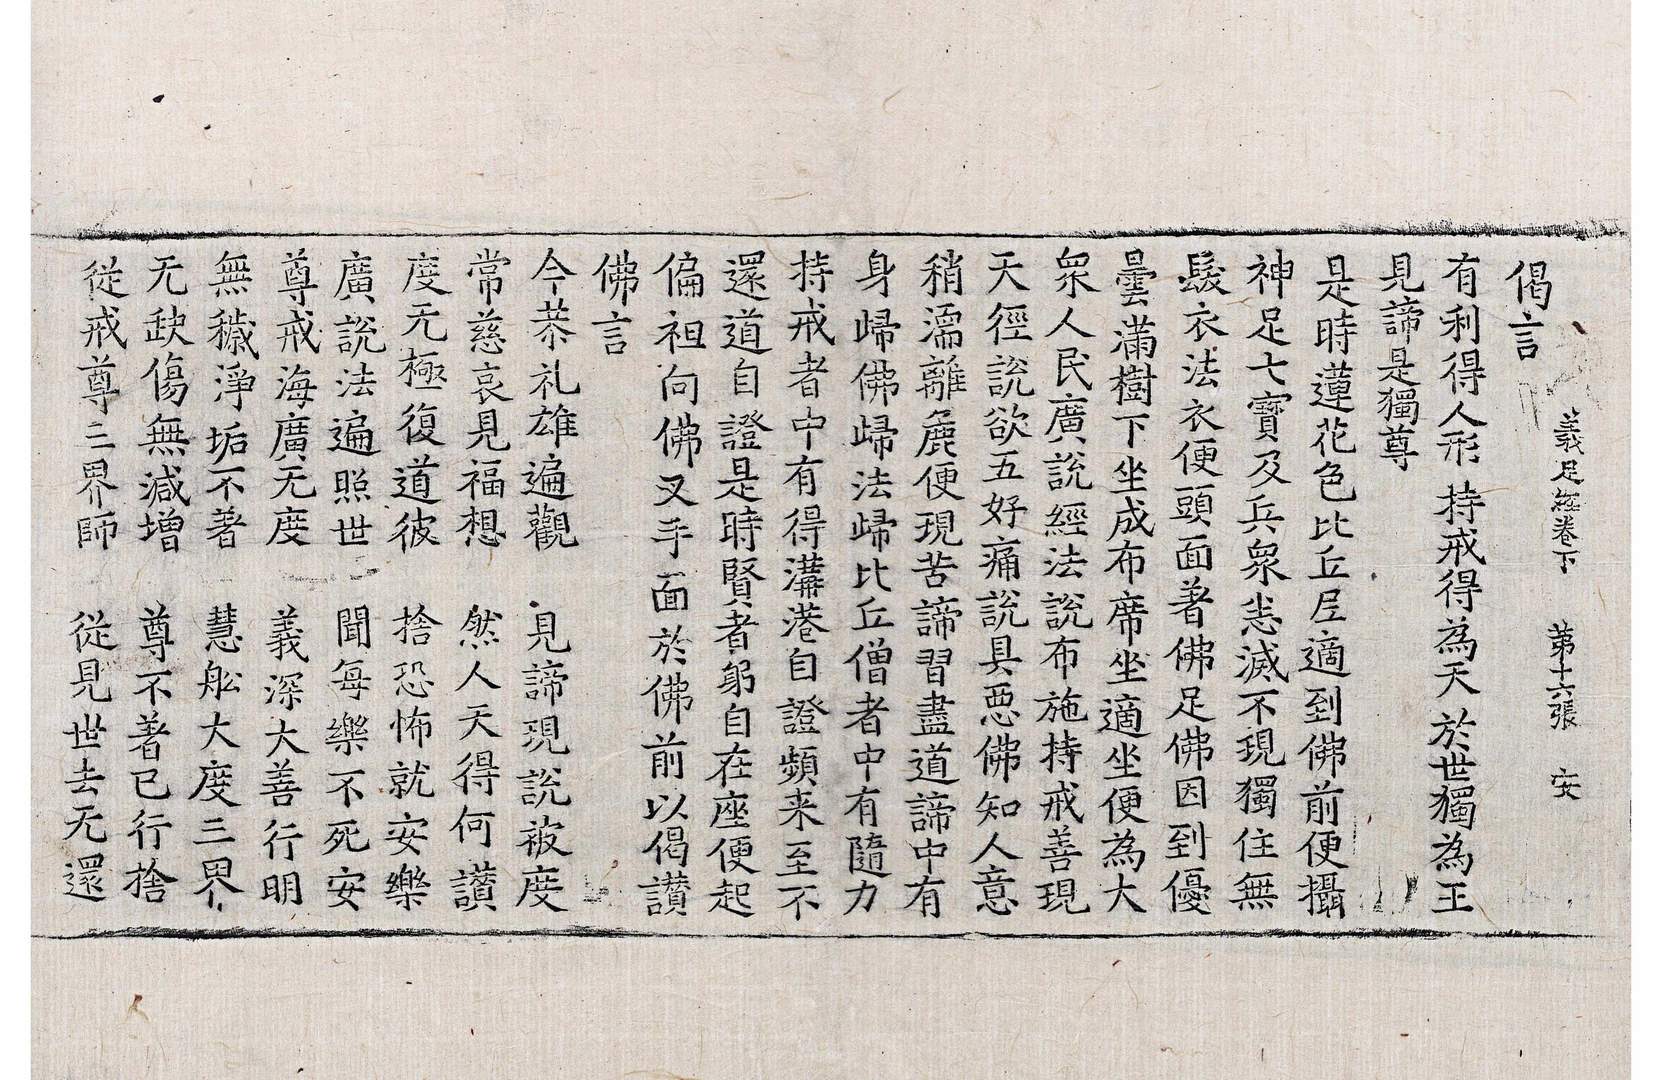 義足經卷下 第十六張 安
偈言
有利得人形 持戒得為天 於世獨為王
見諦是獨尊
是時蓮花色比丘尼適到佛前便攝
神足七寶及兵衆悲滅不現獨住無
髮衣法衣便頭面著佛足佛因到優
曇滿樹下坐成布席坐適坐便為大
衆人民廣說經法說布施持戒善現
天徑說欲五好痛說具惡佛知人意
稍濡離麁便現苦諦習盡道諦中有
身歸佛歸法歸比丘僧者中有隨力
持戒者中有得溝港自證頻来至不
還道自證是時賢者躬自在座便起
偏袒向佛叉手面於佛前以偈讃
佛言
今恭礼雄遍觀 見諦現說被度
常慈哀見福想 然人天得何讃
度无極復道彼 捨恐怖就安樂
廣說法遍照世 聞每樂不死安
尊戒海廣无度 義深大善行明
無穢淨垢不著 慧舩大度三界
无缺傷無減增 尊不著已行捨
從戒尊三界師 從見世去无還